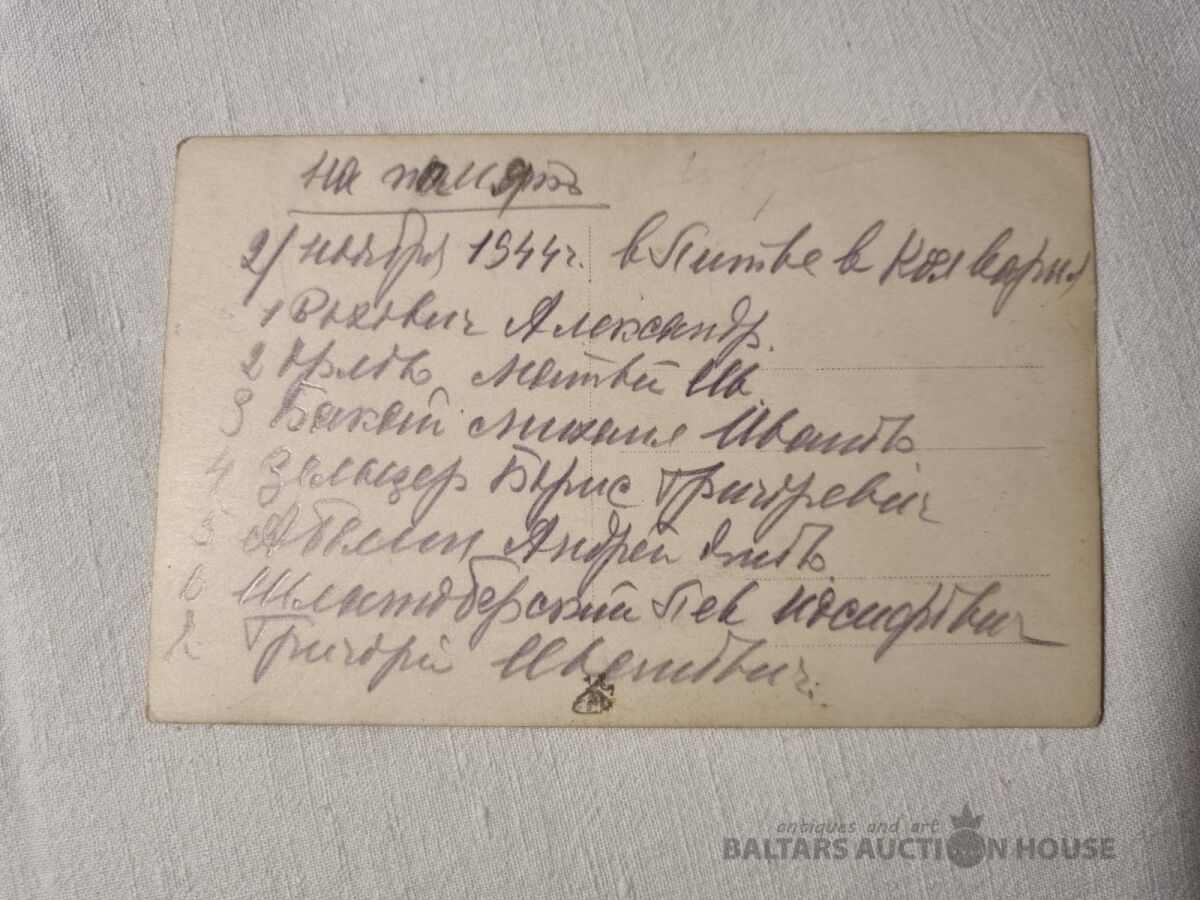 на память
21 ноября 1944 г. в Литве в Колвария
1 Рохович Александр.
2 Орловъ Матвей Ив.
3 Бакай Михаил Иванов
4 Зельцер Борис Григоревич
5 Андрей
6 Лев Иосифович
7 Григорій Иванович.
antiques and art
BALTARS AUCTION HOUSE